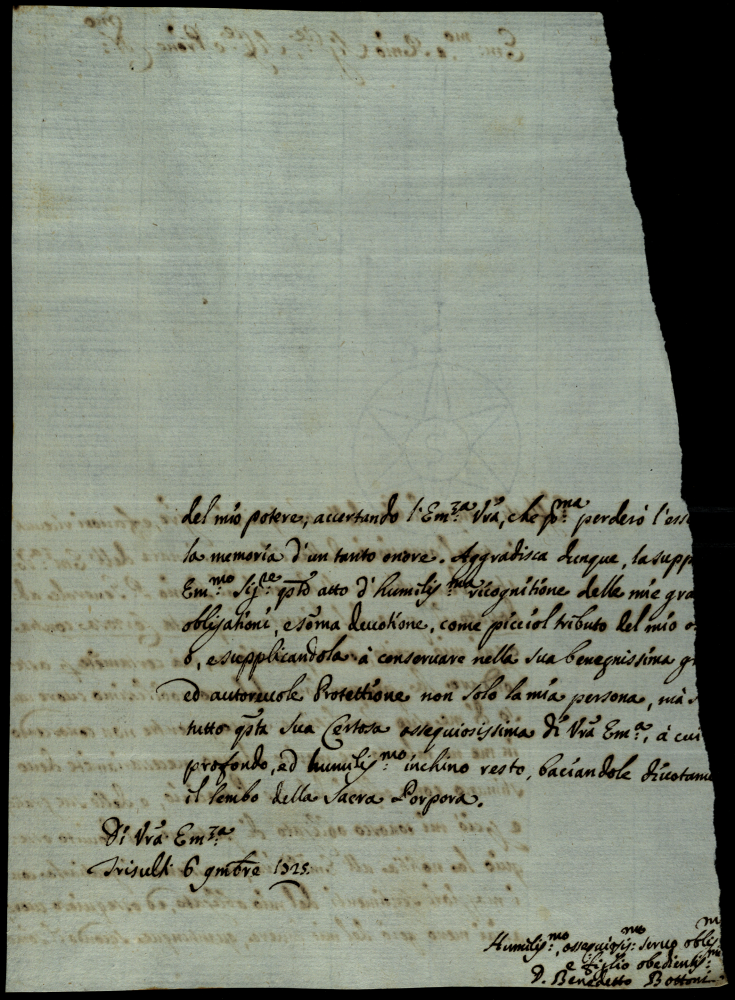 del mio potere; accertando l'Em:za Vra, che p:ma perderò l'ess
la memoria d'un tanto onore. Aggradisca dunque, la supp
Em:mo Sig:re qsto atto d'humiliss:ma ricognitione delle mie gra
obligationi, e somma devotione, come picciol tributo del mio o
o, e supplicandola à conservare nella sua benegnissima g
ed autorevole Protettione non solo la mia persona, mà
tutto qsta sua Certosa ossequiosissima di Vra Em:a, à cui
profondo, ed humiliss:mo inchino resto, baciandole divotame
il lembo della Sacra Porpora.
Di Vra Em:za
Trisulti 6 9mbre 1725
Humiliss:mo, ossequiosiss:mo servo oblig
e figlio obedientiss:
D. Benedetto Bottoni